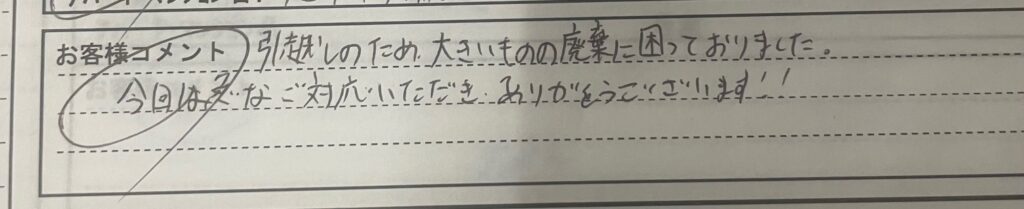 お客様コメント 引越しのため、大きいものの廃棄に困っておりました。
今回は急なご対応いただき、ありがとうございます!!